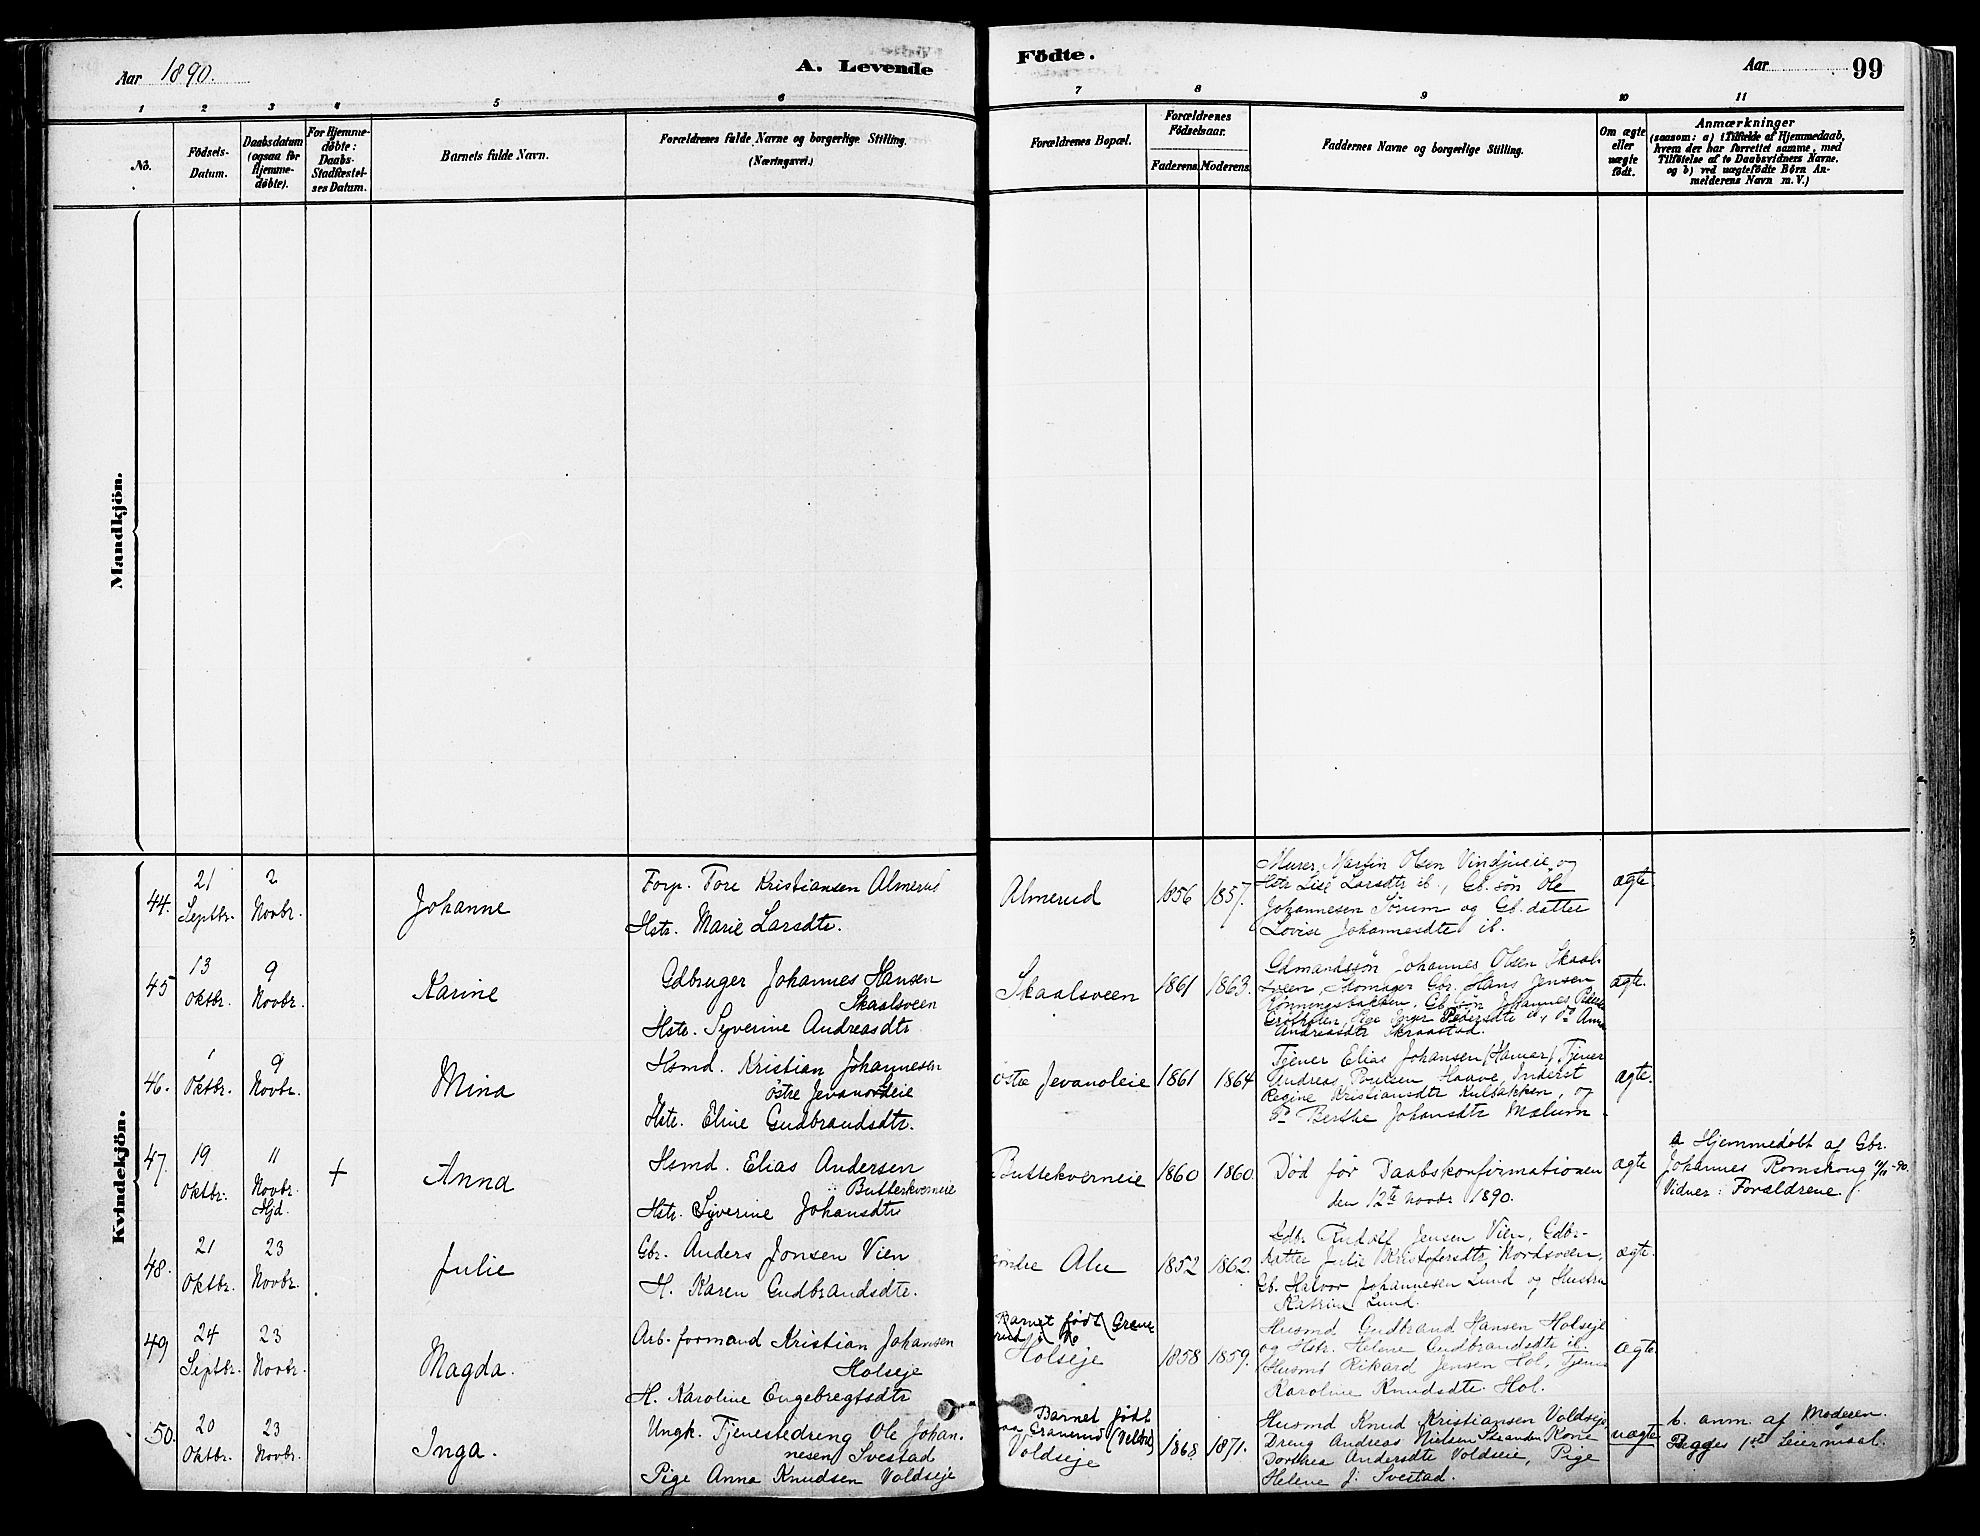 Aar 1890.
A. Levende
Födte.
Aar
99
1 2 3 4 5 6 7 8 9 10 11
No.
Födsels-
Datum.
Daabsdatum
(ogsaa for
Hjemme-
döbte).
For Hjemme-
döbte:
Daabs-
Stadfæstel-
ses Datum.
Barnets fulde Navn.
Forældrenes fulde Navne og borgerlige Stilling.
(Næringsvei.)
Forældrenes Bopæl.
Forældrenes
Födselsaar.
Faderens Moderens
Faddernes Navne og borgerlige Stilling.
Om ægte
eller
uægte
födt.
Anmærkninger
(saasom: a) i Tilfælde af Hjemmedaab,
hvem der har forrettet samme, med
Tilföielse af to Daabsvidners Navne.
og b) ved uægtefödte Börn An-
melderens Navn m. V.)
Mandkjön.
Kvindekjön.
44.
21
Septbr.
2
Novbr.
Johanne
Forp. Tore Kristiansen Almerud
Hstr. Marie Larsdtr.
Almerud
1856
1857.
Murer, Martin Olsen Vindjueie og
Hstr Lise Larsdtr ib., Gb. søn Ole
Johannesen Sørum og Gb. datter
Lovise Johannesdtr ib.
ægte
45
13
Oktbr.
9
Novbr.
Karine
Gdbruger Johannes Hansen
Skaalsveen
Hstr. Syverine Andreasdtr
Skaalsveen
1861
1863.
Gdmandssøn Johannes Olsen Skaal-
sveen, Skomager Gbr. Hans Jensen
Rønningsbakken, Gb. søn Johannes Peders
Pige Inger Pedersdtr ib, do Anna
Andreasdtr Skraastad.
ægte.
46.
1
Oktbr.
9
Novbr.
Mina
Hsmd. Kristian Johannesen
østre Jevanoleie
Hstr. Eline Gudbrandsdtr.
østre Jevanoleie
1861
1864
Tjener Elias Johansen (Hamar) Tjener
Andreas Poulsen Haave, Inderst
Regine Kristiansdtr Kulbakken, og
Do Berthe Johansdtr Mælum
ægte.
47.
19
Oktbr.
11
Novbr.
Hjd.
+
Anna
Hsmd. Elias Andersen
Butterkverneie
Hstr. Syverine Johansdtr
Buttekverneie
1860
1860
Død før Daabskonfirmationen
den 12te Novbr 1890.
ægte
a Hjemmedøbt af Gbr.
Johannes Romskoug 11/11-90.
Vidner: Forældrene.
48.
21
Oktbr.
23
Novbr.
Julie
Gbr. Anders Jonsen Vien
H. Karen Gudbrandsdtr.
søndre Alu
1852
1862.
Gdbr. Rudolf Jensen Vien, Gdbr-
datter Julie Kristofersdtr Nordsveen,
Gb. Halvor Johannesen Lund og Hustru
Katrine Lund.
ægte.
49
24
Septbr.
23
Novbr.
Magda.
Arb. formand Kristian Johansen
Holseje
H. Karoline Engebregtsdtr
Barnet født
Holseje
1858
1859.
Husmd Gudbrand Hansen Holseje
og Hstr. Helene Gudbrandsdtr ib.
Husmd Rikard Jensen Hol, Tjener
Karoline Knudsdtr Hol.
ægte.
50.
20
Oktbr.
23
Novbr.
Inga.
Ungk. Tjenestedreng Ole Johan-
nesen Svestad
Pige Anna Knudsen Voldseje
Barnet født
paa Graverud
Voldseje
1868
1871.
Husmd Knud Kristiansen Voldseje
Dreng Andreas Nielsen Stranden, Kone
Dorthea Andersdtr Voldseie, Pige
Helene J. Svestad.
uægte
b. anm. af Moderen.
Begges 1ste Leiermaal.